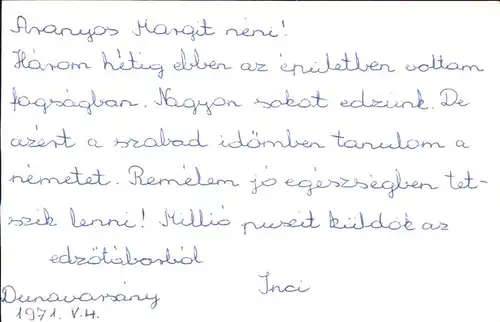 Aranyos Margit néni!
Három hétig ebben az épületben voltam
fogságban. Nagyon sokat edzünk. De
azért a szabad időmben tanulom a
németet. Remélem jó egészségben tet-
szik lenni! Millió puszit küldök az
edzőtáborból
Inci
Dunavarsány
1971. V.4.